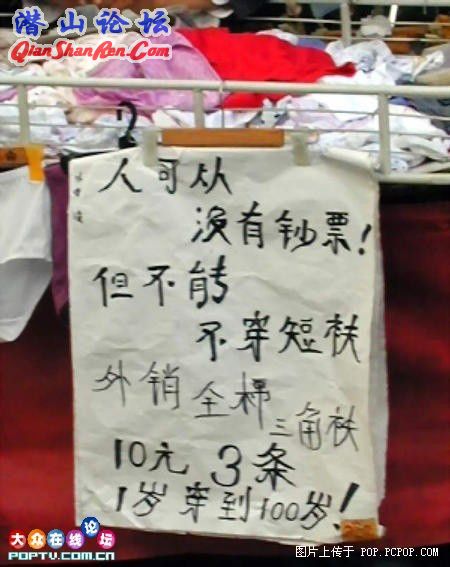 潜山论坛
QianShanRen.Com
人可从
没有钞票!
但不能
不穿短衭
外销全棉三角衭
10元 3条
1岁穿到100岁!
大众在线论坛
POPTV.COM.CN
图片上传于 POP.PCPOP.COM